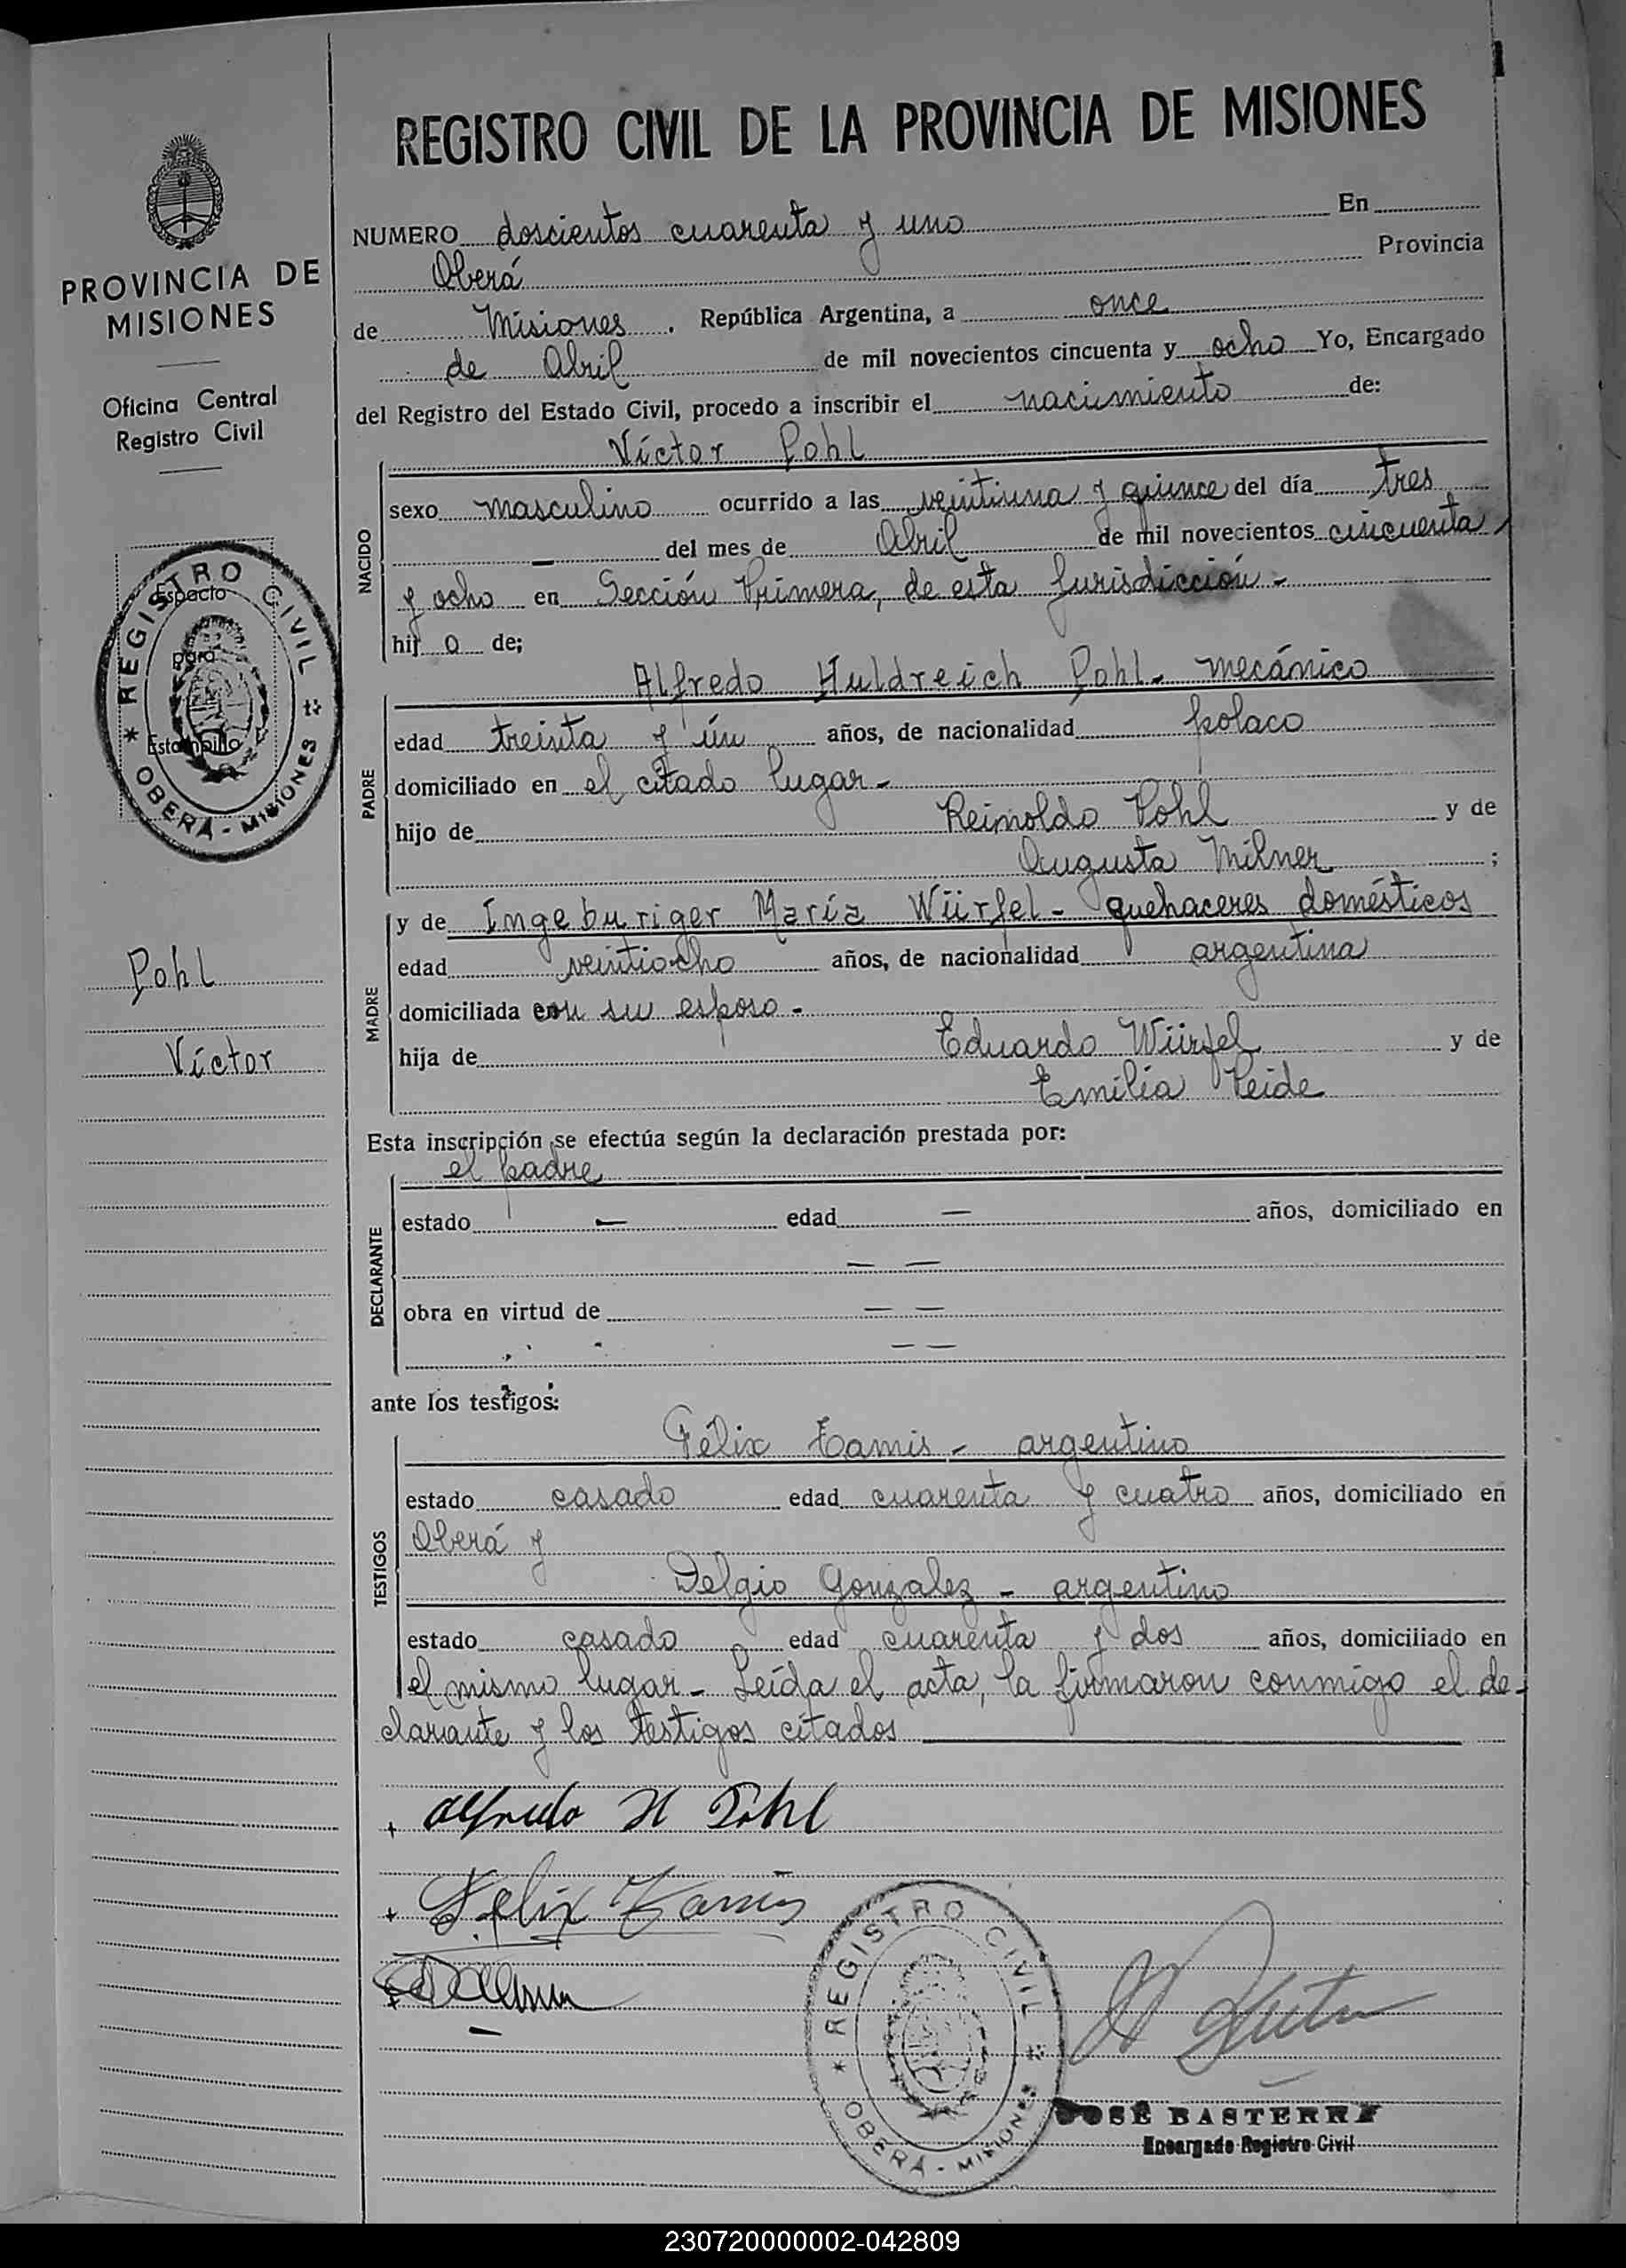 REGISTRO CIVIL DE LA PROVINCIA DE MISIONES
PROVINCIA DE
MISIONES
Oficina Central
Registro Civil
REGISTRO CIVIL
OBERÁ - MISIONES
Espacio
para
Estampilla
Pohl
Víctor
NUMERO doscientos cuarenta y uno En
Oberá Provincia
de Misiones. República Argentina, a once
de Abril de mil novecientos cincuenta y ocho Yo, Encargado
del Registro del Estado Civil, procedo a inscribir el nacimiento de:
NACIDO
Víctor Pohl
sexo masculino ocurrido a las veintiuna y quince del día tres
— del mes de Abril de mil novecientos cincuenta
y ocho en Sección Primera, de esta Jurisdicción -
hijo de;
PADRE
Alfredo Huldreich Pohl - mecánico
edad treinta y ún años, de nacionalidad polaco
domiciliado en el citado lugar -
hijo de Reinoldo Pohl y de
Augusta Milner ;
MADRE
y de Ingeburiger María Würfel - quehaceres domésticos
edad veintiocho años, de nacionalidad argentina
domiciliada con su esposo -
hija de Eduardo Würfel y de
Emilia Peide
Esta inscripción se efectúa según la declaración prestada por:
DECLARANTE
el padre
estado — edad — años, domiciliado en
— —
obra en virtud de — —
— —
ante los testigos:
TESTIGOS
Félix Kamis - argentino
estado casado edad cuarenta y cuatro años, domiciliado en
Oberá y
Delgio Gonzalez - argentino
estado casado edad cuarenta y dos años, domiciliado en
el mismo lugar - Leída el acta, la firmaron conmigo el de-
clarante y los testigos citados
Alfredo H Pohl
Felix Kamis
REGISTRO CIVIL
OBERÁ - MISIONES
JOSÉ BASTERRA
Encargado Registro Civil
230720000002-042809